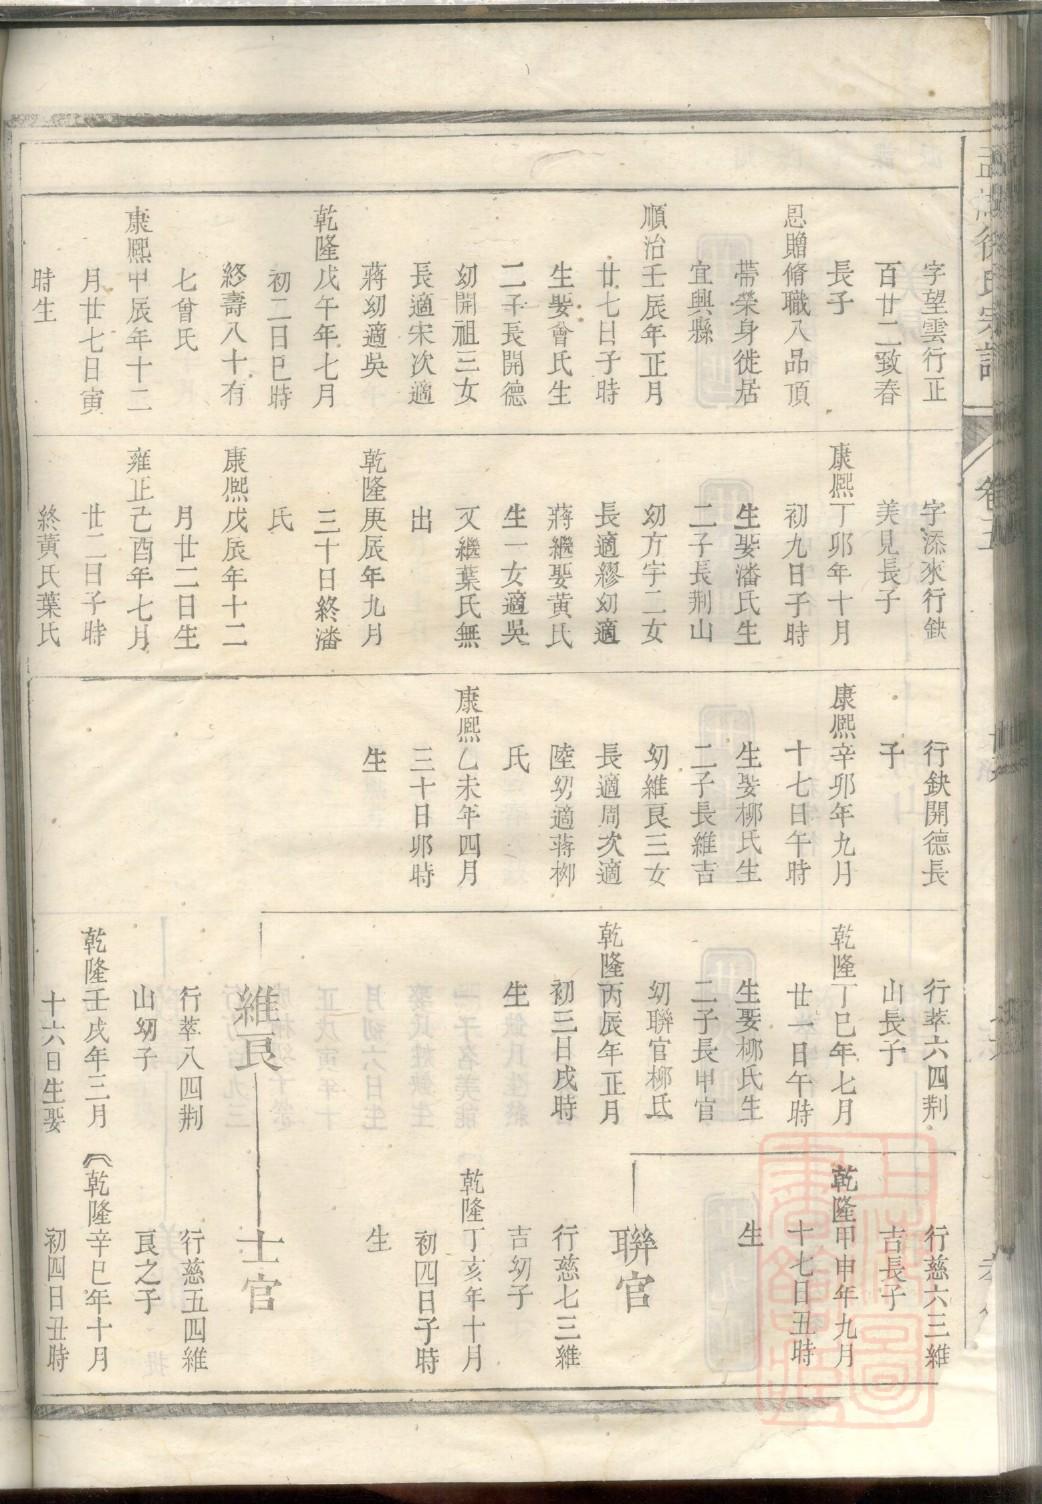 徐氏宗譜
卷五
字望雲行正
百廿二致春
長子
恩贈脩職八品頂
帶榮身徙居
宜興縣
順治壬辰年正月
廿七日子時
生娶曾氏生
二子長開德
幼開祖三女
長適宋次適
蔣幼適吳
乾隆戊午年七月
初二日巳時
終壽八十有
七曾氏
康熙甲辰年十二
月廿七日寅
時生
字添來行鈌
美見長子
康熙丁卯年十月
初九日子時
生娶潘氏生
二子長荆山
幼方宇二女
長適繆幼適
蔣繼娶黄氏
生一女適吳
又繼葉氏無
出
乾隆庚辰年九月
三十日終潘
氏
康熙戊辰年十二
月廿二日生
雍正己酉年七月
廿二日子時
終黄氏葉氏
行鈌開德長
子
康熙辛卯年九月
十七日午時
生娶柳氏生
二子長維吉
幼維良三女
長適周次適
陸幼適蔣柳
氏
康熙乙未年四月
三十日卯時
生
行萃六四荆
山長子
乾隆丁巳年七月
廿一日午時
生娶柳氏生
二子長申官
幼聯官柳氏
乾隆丙辰年正月
初三日戌時
生
維良
行萃八四荆
山幼子
乾隆壬戌年三月
十六日生娶
行慈六三維
吉長子
乾隆甲申年九月
十七日丑時
生
聯官
行慈七三維
吉幼子
乾隆丁亥年十月
初四日子時
生
士官
行慈五四維
良之子
乾隆辛巳年十月
初四日丑時